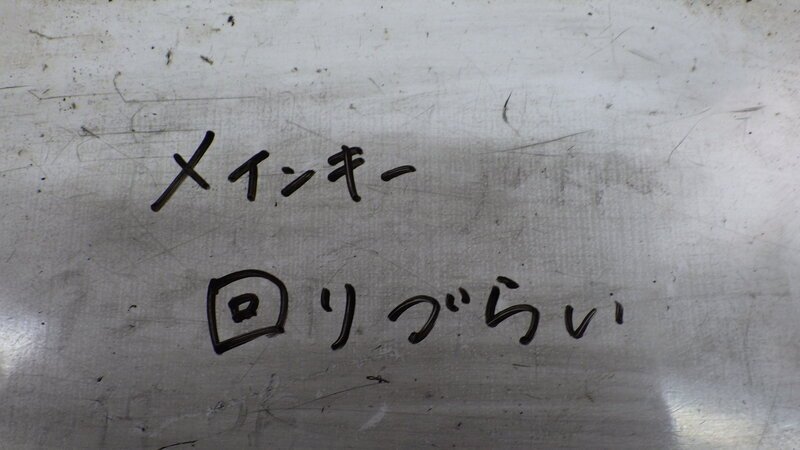 メインキー
回りづらい